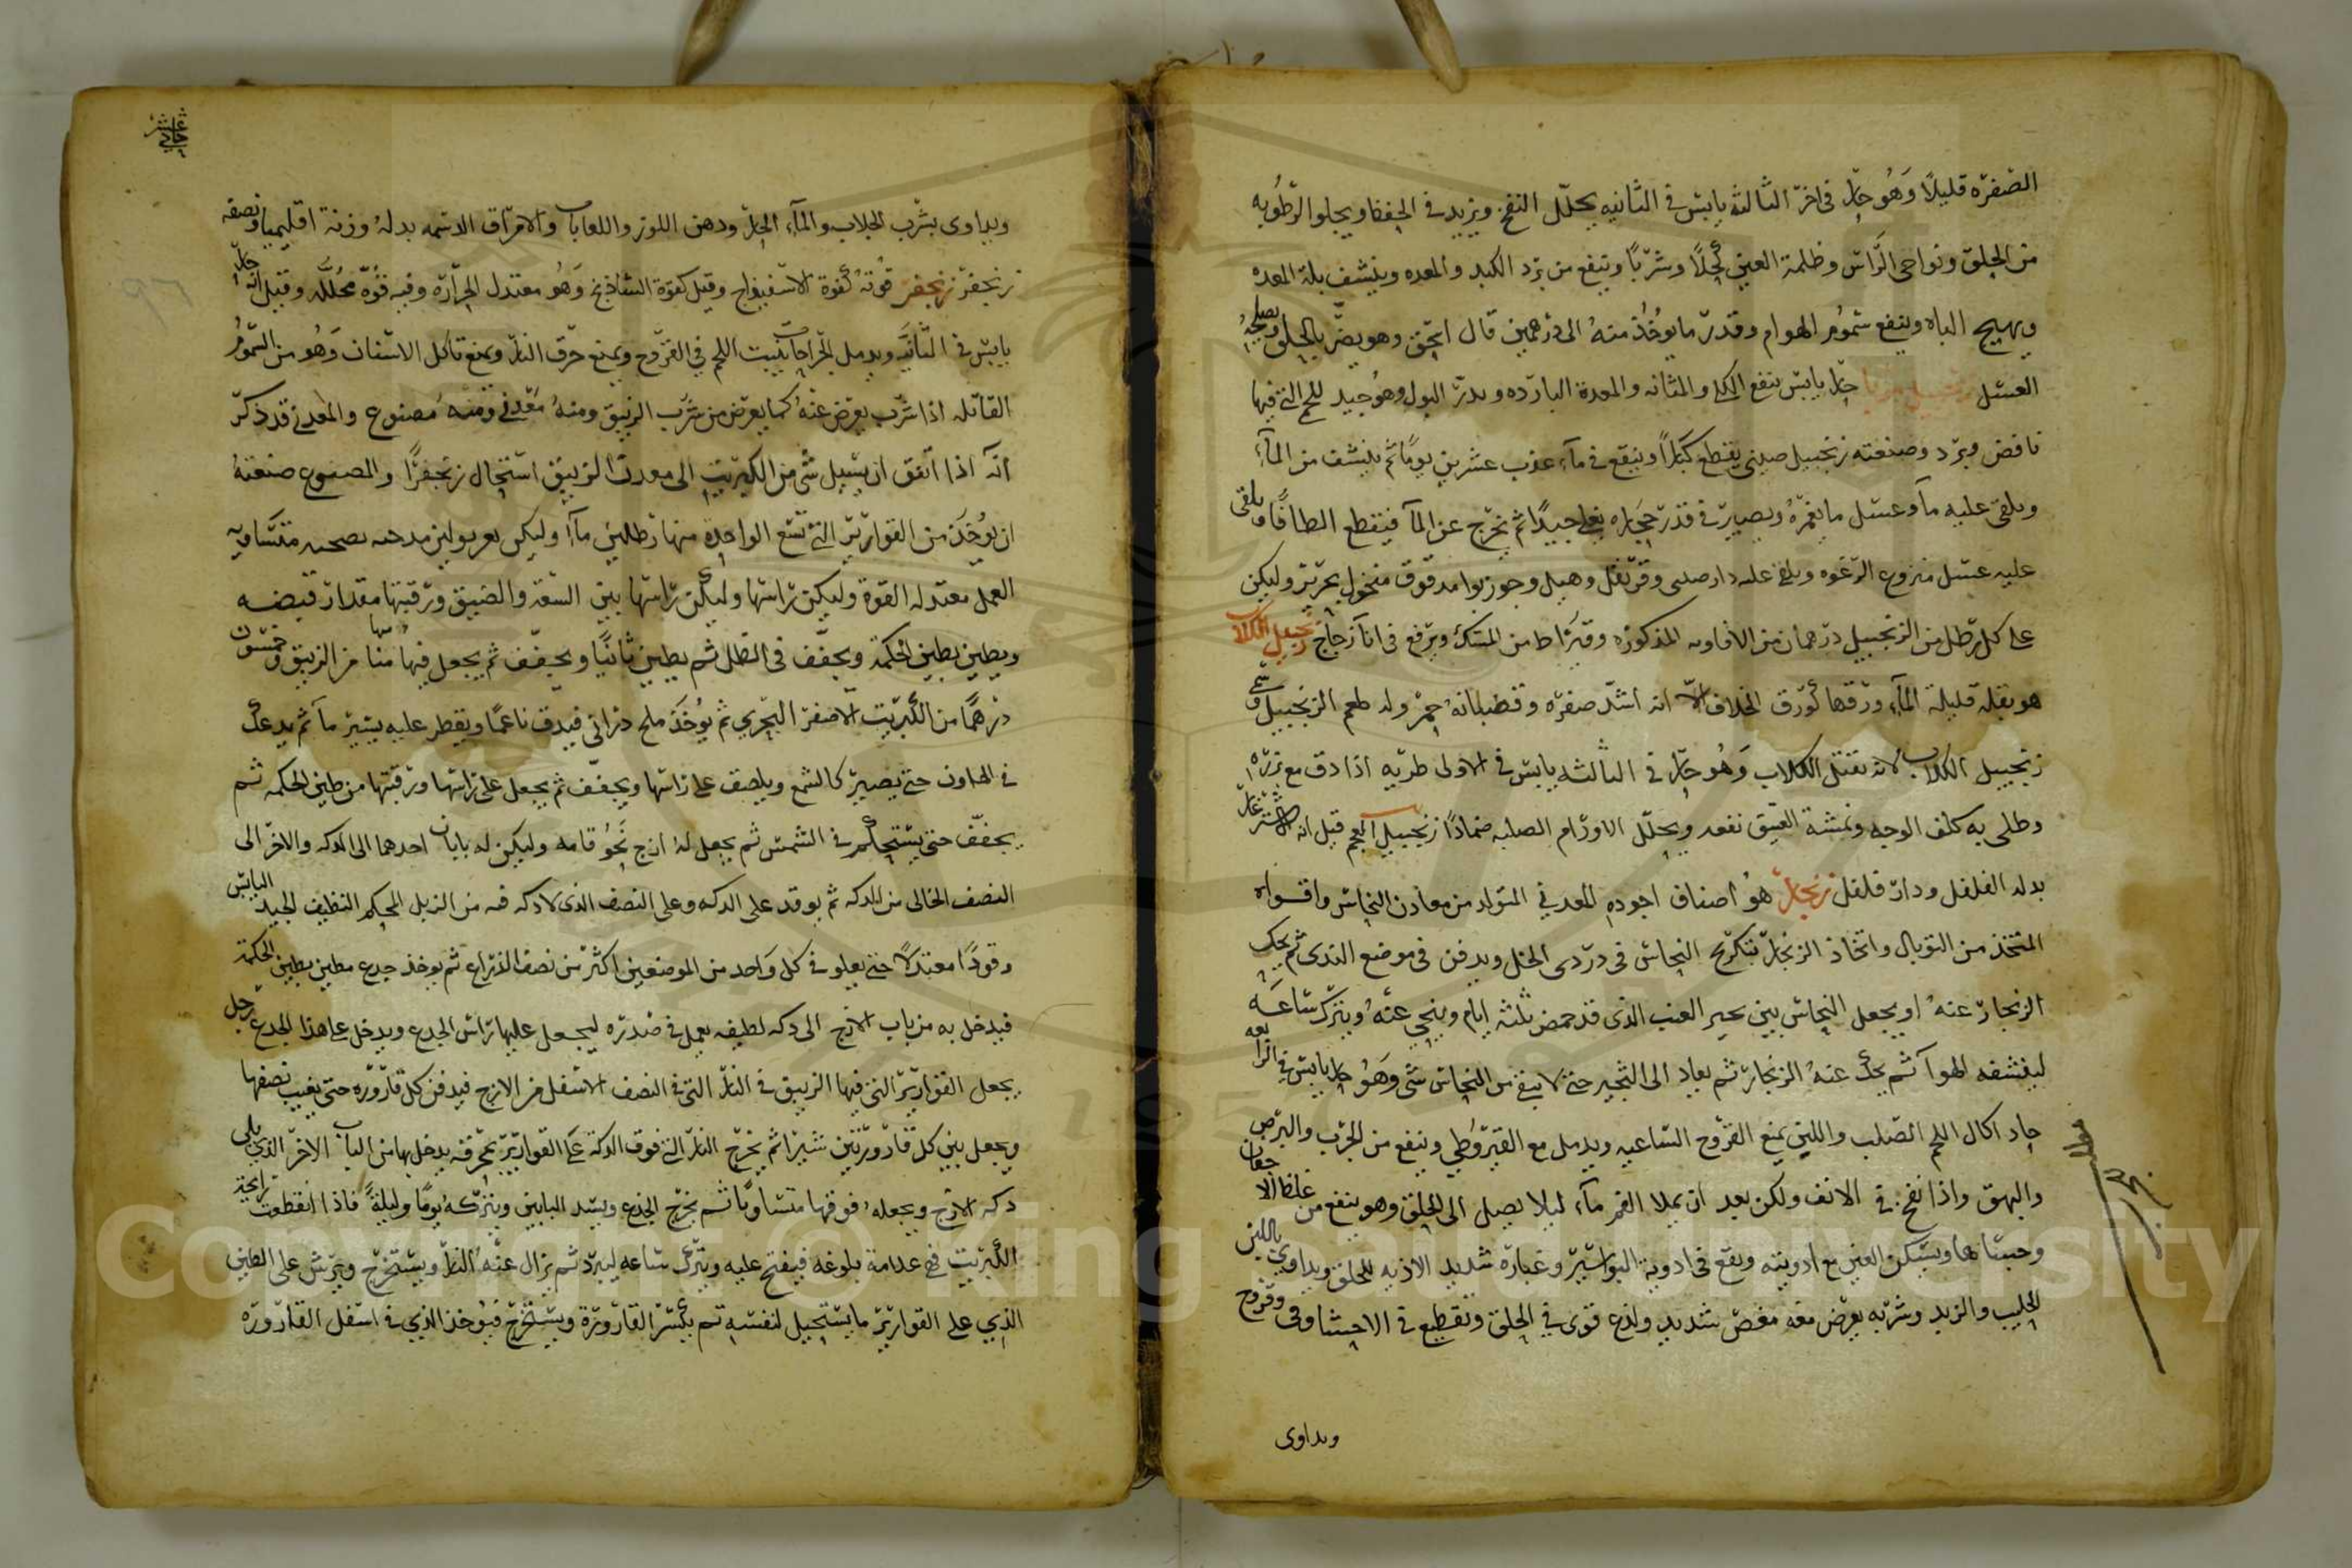 الصفره قليلا وهو حار فى اخر الثالثة يابس فى الثانيه يحلل النفخ ويزيد فى الحفظ ويجلو الرطوبه
من الحلق ونواحى الراس وظلمة العين كحلا وشربا وينفع من برد الكبد والمعده وينشف بلة المعده
ويهيج الباه وينفع سموم الهوام وقدر ما يوخذ منه الى درهمين قال اسحق وهو يضر بالحلق ويصلحه
العسل زنجبيل مربا حار يابس ينفع الكلى والمثانه والمعدة البارده ويدر البول وهو جيد للحمى التى فيها
نافض وبرد وصنعته زنجبيل صينى يقطع كبارا وينقع فى ماء عذب عشرين يوما ثم ينشف من الماء
ويلقى عليه ماء وعسل ما يغمره ويصير فى قدر حجاره يغلى جيدا ثم يخرج عن الماء فيقطع الطافا ويلقى
عليه عسل منزوع الرغوه ويلقى عليه دارصينى وقرنفل وهيل وجوزبوا مدقوق منخول بحرير وليكن
على كل رطل من الزنجبيل درهمان من الافاويه المذكوره وقيراط من المسك ويرفع فى انا زجاج زنجبيل الكلاب
هو بقلة قليلة الماء ورقها كورق الخلاف الا انه اشد صفره وقضبانه حمر وله طعم الزنجبيل وسمى
زنجبيل الكلاب لانه يقتل الكلاب وهو حار فى الثالثه يابس فى الاولى طريه اذا دق مع بزره
وطلى به كلف الوجه ونمشه العتيق نفعه ويحلل الاورام الصلبه ضمادا زنجبيل العجم قيل انه الاشترغاز
بدله الفلفل ودار فلفل زنجار هو اصناف اجوده المعدنى المتولد من معادن النحاس واقواه
المتخذ من التوبال واتخاذ الزنجار بتكريج النحاس فى دردى الخل ويدفن فى موضع الندى ثم يحك
الزنجار عنه او يجعل النحاس بين ثجير العنب الذى قد حمض ثلثه ايام وينحى عنه ويترك ساعه
لينشفه الهوا ثم يحك عنه الزنجار ثم يعاد الى الثجير حتى لا يبقى من النحاس شى وهو حار يابس فى الرابعه
حاد اكال اللحم الصلب واللين يمنع القروح الساعيه ويدمل مع القيروطى وينفع من الجرب والبرص
والبهق واذا نفخ فى الانف ولكن بعد ان يملا الفم ماء ليلا يصل الى الحلق وهو ينفع من غلظ الاجفان
وجساها ويسكن العين مع ادويته ويقع فى ادوية البواسير وغباره شديد الاذيه للحلق ويداوى باللبن
الحليب والزبد وشربه يعرض معه مغص شديد ولذع قوى فى الحلق وتقطيع فى الاحشا وقى وقروح
ويداوى
حادي عشر
ويداوى بشرب الجلاب والماء الحار ودهن اللوز واللعابات والامراق الدسمه بدله وزنة اقليميا ونصفه
زنجفر زنجفر قوته كقوة الاسفيداج وقيل كقوة الشاذنج وهو معتدل الحرارة وفيه قوة محلله وقيل انه حار
يابس فى الثانيه ويدمل الجراحات ينبت اللحم فى القروح ويمنع حرق النار ويمنع تاكل الاسنان وهو من السموم
القاتله اذا شرب يعرض عنه كما يعرض من شرب الزيبق ومنه معدنى ومنه مصنوع والمعدنى قد ذكر
انه اذا اتفق ان يسيل شى من الكبريت الى معدن الزيبق استحال زنجفرا والمصنوع صنعته
ان يوخذ من القوارير التى تسع الواحدة منها رطلين ماء وليكن متساويه
العمل معتدله القوة وليكن راسها وليكن راسها بين السعة والضيق ورقبتها مقدار قبضه
ويطين بطين الحكمة ويجفف فى الظل ثم يطين ثانيا ويجفف ثم يجعل فيها منا من الزيبق وخمسون
درهما من الكبريت الاصفر البحرى ثم يوخذ ملح درانى فيدق ناعما ويقطر عليه يسير ماء ثم يدعك
فى الهاون حتى يصير كالشمع ويلصق على راسها ويجفف ثم يجعل على راسها ورقبتها من طين الحكمه ثم
يجفف حتى يستحكم فى الشمس ثم يجعل له ازج نحو قامه وليكن له بابان احدهما الى الدكه والاخر الى
النصف الخالى من الدكه ثم يوقد على الدكه وعلى النصف الذى لا دكه فيه من الزبل المحكم النظيف الجيد اليابس
وقودا معتدلا حتى يعلو فى كل واحد من الموضعين اكثر من نصف الذراع ثم يوخذ جدع مطين بطين الحكمة
فيدخل به من باب الازج الى دكه لطيفه يعمل فى صدره ليجعل عليها راس الجدع ويدخل على هذا الجدع رجل
يجعل القوارير التى فيها الزيبق فى النار التى فى النصف الاسفل من الازج فيدفن كل قاروره حتى يغيب نصفها
ويجعل بين كل قارورتين شبرا ثم يخرج النار التى فوق الدكة على القوارير بمجرفه يدخل بها من الباب الاخر الذى يلى
دكه الازج ويجعله فوقها متساويا ثم يخرج الجذع ويسد البابين ويتركه يوما وليلة فاذا انقطعت رايحة
الكبريت فهى علامة بلوغه فيفتح عليه ويترك ساعه ليبرد ثم يزال عنه النار ويستخرج ويرش على الطين
الذى على القوارير ما يستحيل لنفسه ثم يكسر القارورة ويستخرج فيوخذ الذى فى اسفل القاروره